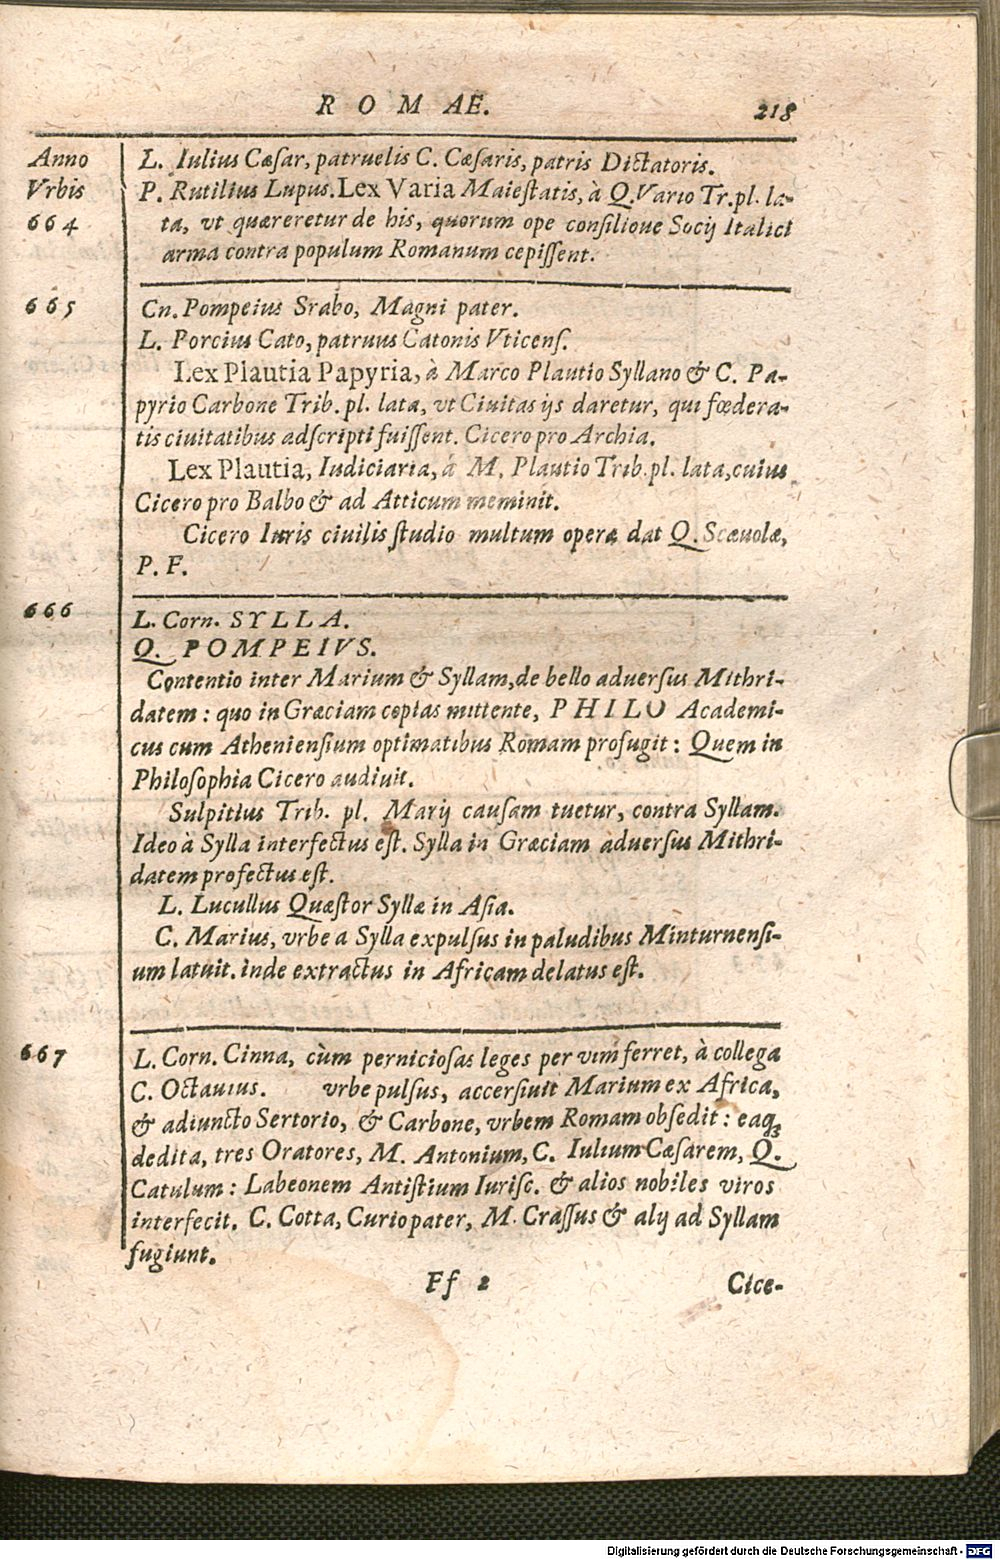 R O M AE. 218
Anno L. Iulius Cæsar, patruelis C. Cæsaris, patris Dictatoris.
Vrbis P. Rutilius Lupus. Lex Varia Maieſtatis, à Q. Vario Tr. pl. la-
664 ta, vt quæreretur de his, quorum ope conſilioue Socij Italici
arma contra populum Romanum cepiſſent.
665 Cn. Pompeius Srabo, Magni pater.
L. Porcius Cato, patruus Catonis Vticenſ.
Lex Plautia Papyria, à Marco Plautio Syllano & C. Pa-
pyrio Carbone Trib. pl. lata, vt Ciuitas ijs daretur, qui fœdera-
tis ciuitatibus adſcripti fuiſſent. Cicero pro Archia.
Lex Plautia, Iudiciaria, á M. Plautio Trib. pl. lata, cuius
Cicero pro Balbo & ad Atticum meminit.
Cicero Iuris ciuilis ſtudio multum operæ dat Q. Scæuolæ,
P. F.
666 L. Corn. SYLLA.
Q. POMPEIVS.
Contentio inter Marium & Syllam, de bello aduerſus Mithri-
datem : quo in Græciam copias mittente, PHILO Academi-
cus cum Athenienſium optimatibus Romam profugit : Quem in
Philoſophia Cicero audiuit.
Sulpitius Trib. pl. Marij cauſam tuetur, contra Syllam.
Ideo à Sylla interfectus eſt. Sylla in Græciam aduerſus Mithri-
datem profectus eſt.
L. Lucullus Quæſtor Syllæ in Aſia.
C. Marius, vrbe a Sylla expulſus in paludibus Minturnenſi-
um latuit. inde extractus in Africam delatus eſt.
667 L. Corn. Cinna, cùm pernicioſas leges per vim ferret, à collega
C. Octauius. vrbe pulſus, accerſiuit Marium ex Africa,
& adiuncto Sertorio, & Carbone, vrbem Romam obſedit : eaq;
dedita, tres Oratores, M. Antonium, C. Iulium Cæſarem, Q.
Catulum : Labeonem Antiſtium Iuriſc. & alios nobiles viros
interfecit. C. Cotta, Curio pater, M. Craſſus & alij ad Syllam
fugiunt.
Ff 2 Cice-
Digitalisierung gefördert durch die Deutsche Forschungsgemeinschaft - DFG